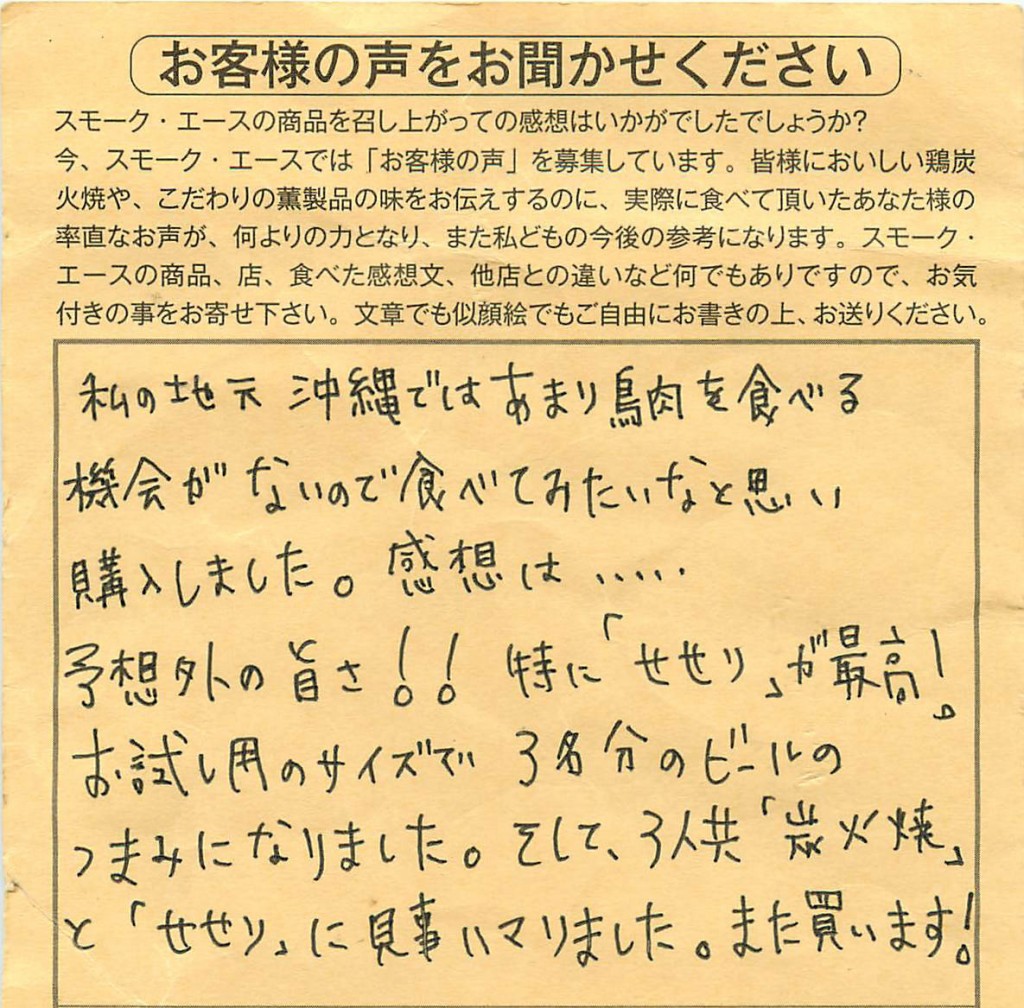 お客様の声をお聞かせください
スモーク・エースの商品を召し上がっての感想はいかがでしたでしょうか?
今、スモーク・エースでは「お客様の声」を募集しています。皆様においしい鶏炭
火焼や、こだわりの薫製品の味をお伝えするのに、実際に食べて頂いたあなた様の
率直なお声が、何よりの力となり、また私どもの今後の参考になります。スモーク・
エースの商品、店、食べた感想文、他店との違いなど何でもありですので、お気
付きの事をお寄せ下さい。文章でも似顔絵でもご自由にお書きの上、お送りください。
私の地元 沖縄ではあまり鳥肉を食べる
機会がないので食べてみたいなと思い
購入しました。感想は.....
予想外の旨さ!! 特に「せせり」が最高!
お試し用のサイズで 3名分のビールの
つまみになりました。そして、3人共「炭火焼」
と「せせり」に見事ハマりました。また買います!